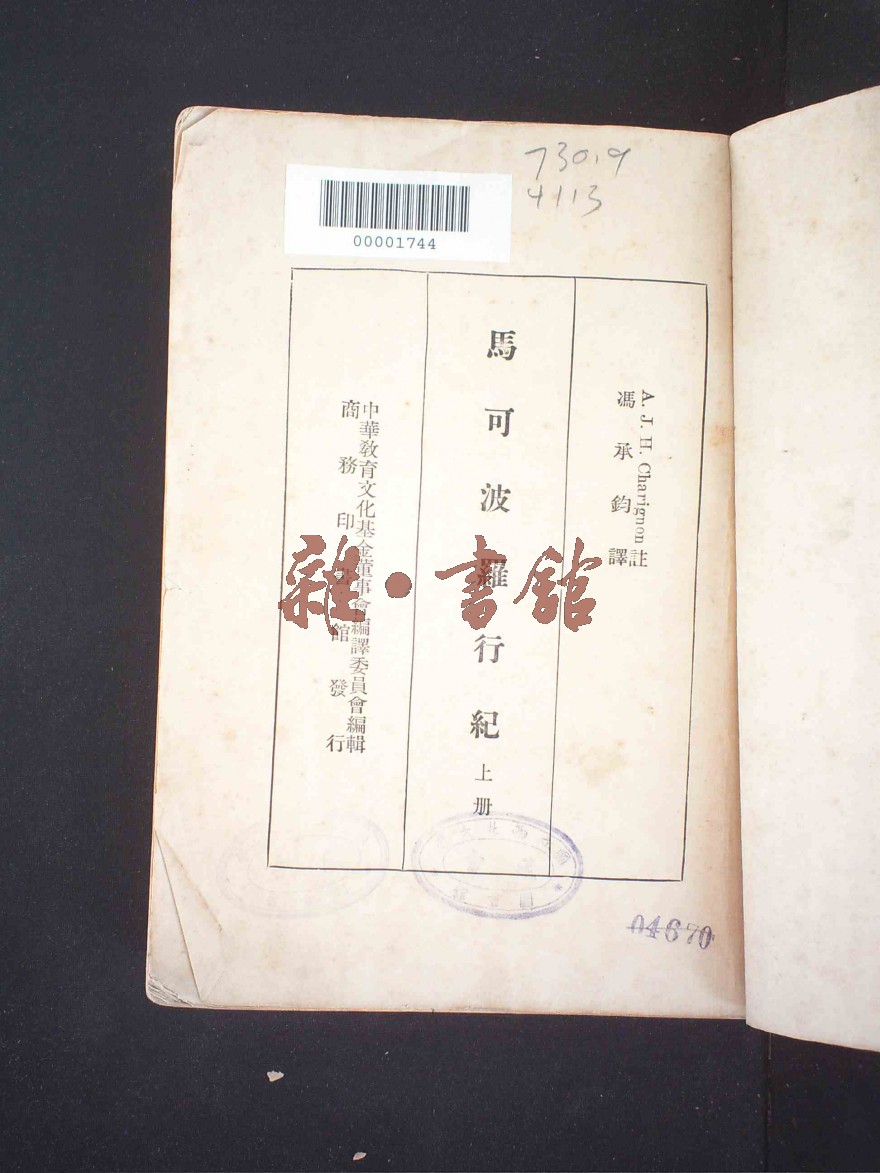 73019
4113
00001744
A. J. H. Charignon 註
馮承鈞譯
馬可波羅行紀上册
中華教育文化基金董事會編譯委員會編輯
商務印書館發行
雜·書館
04670